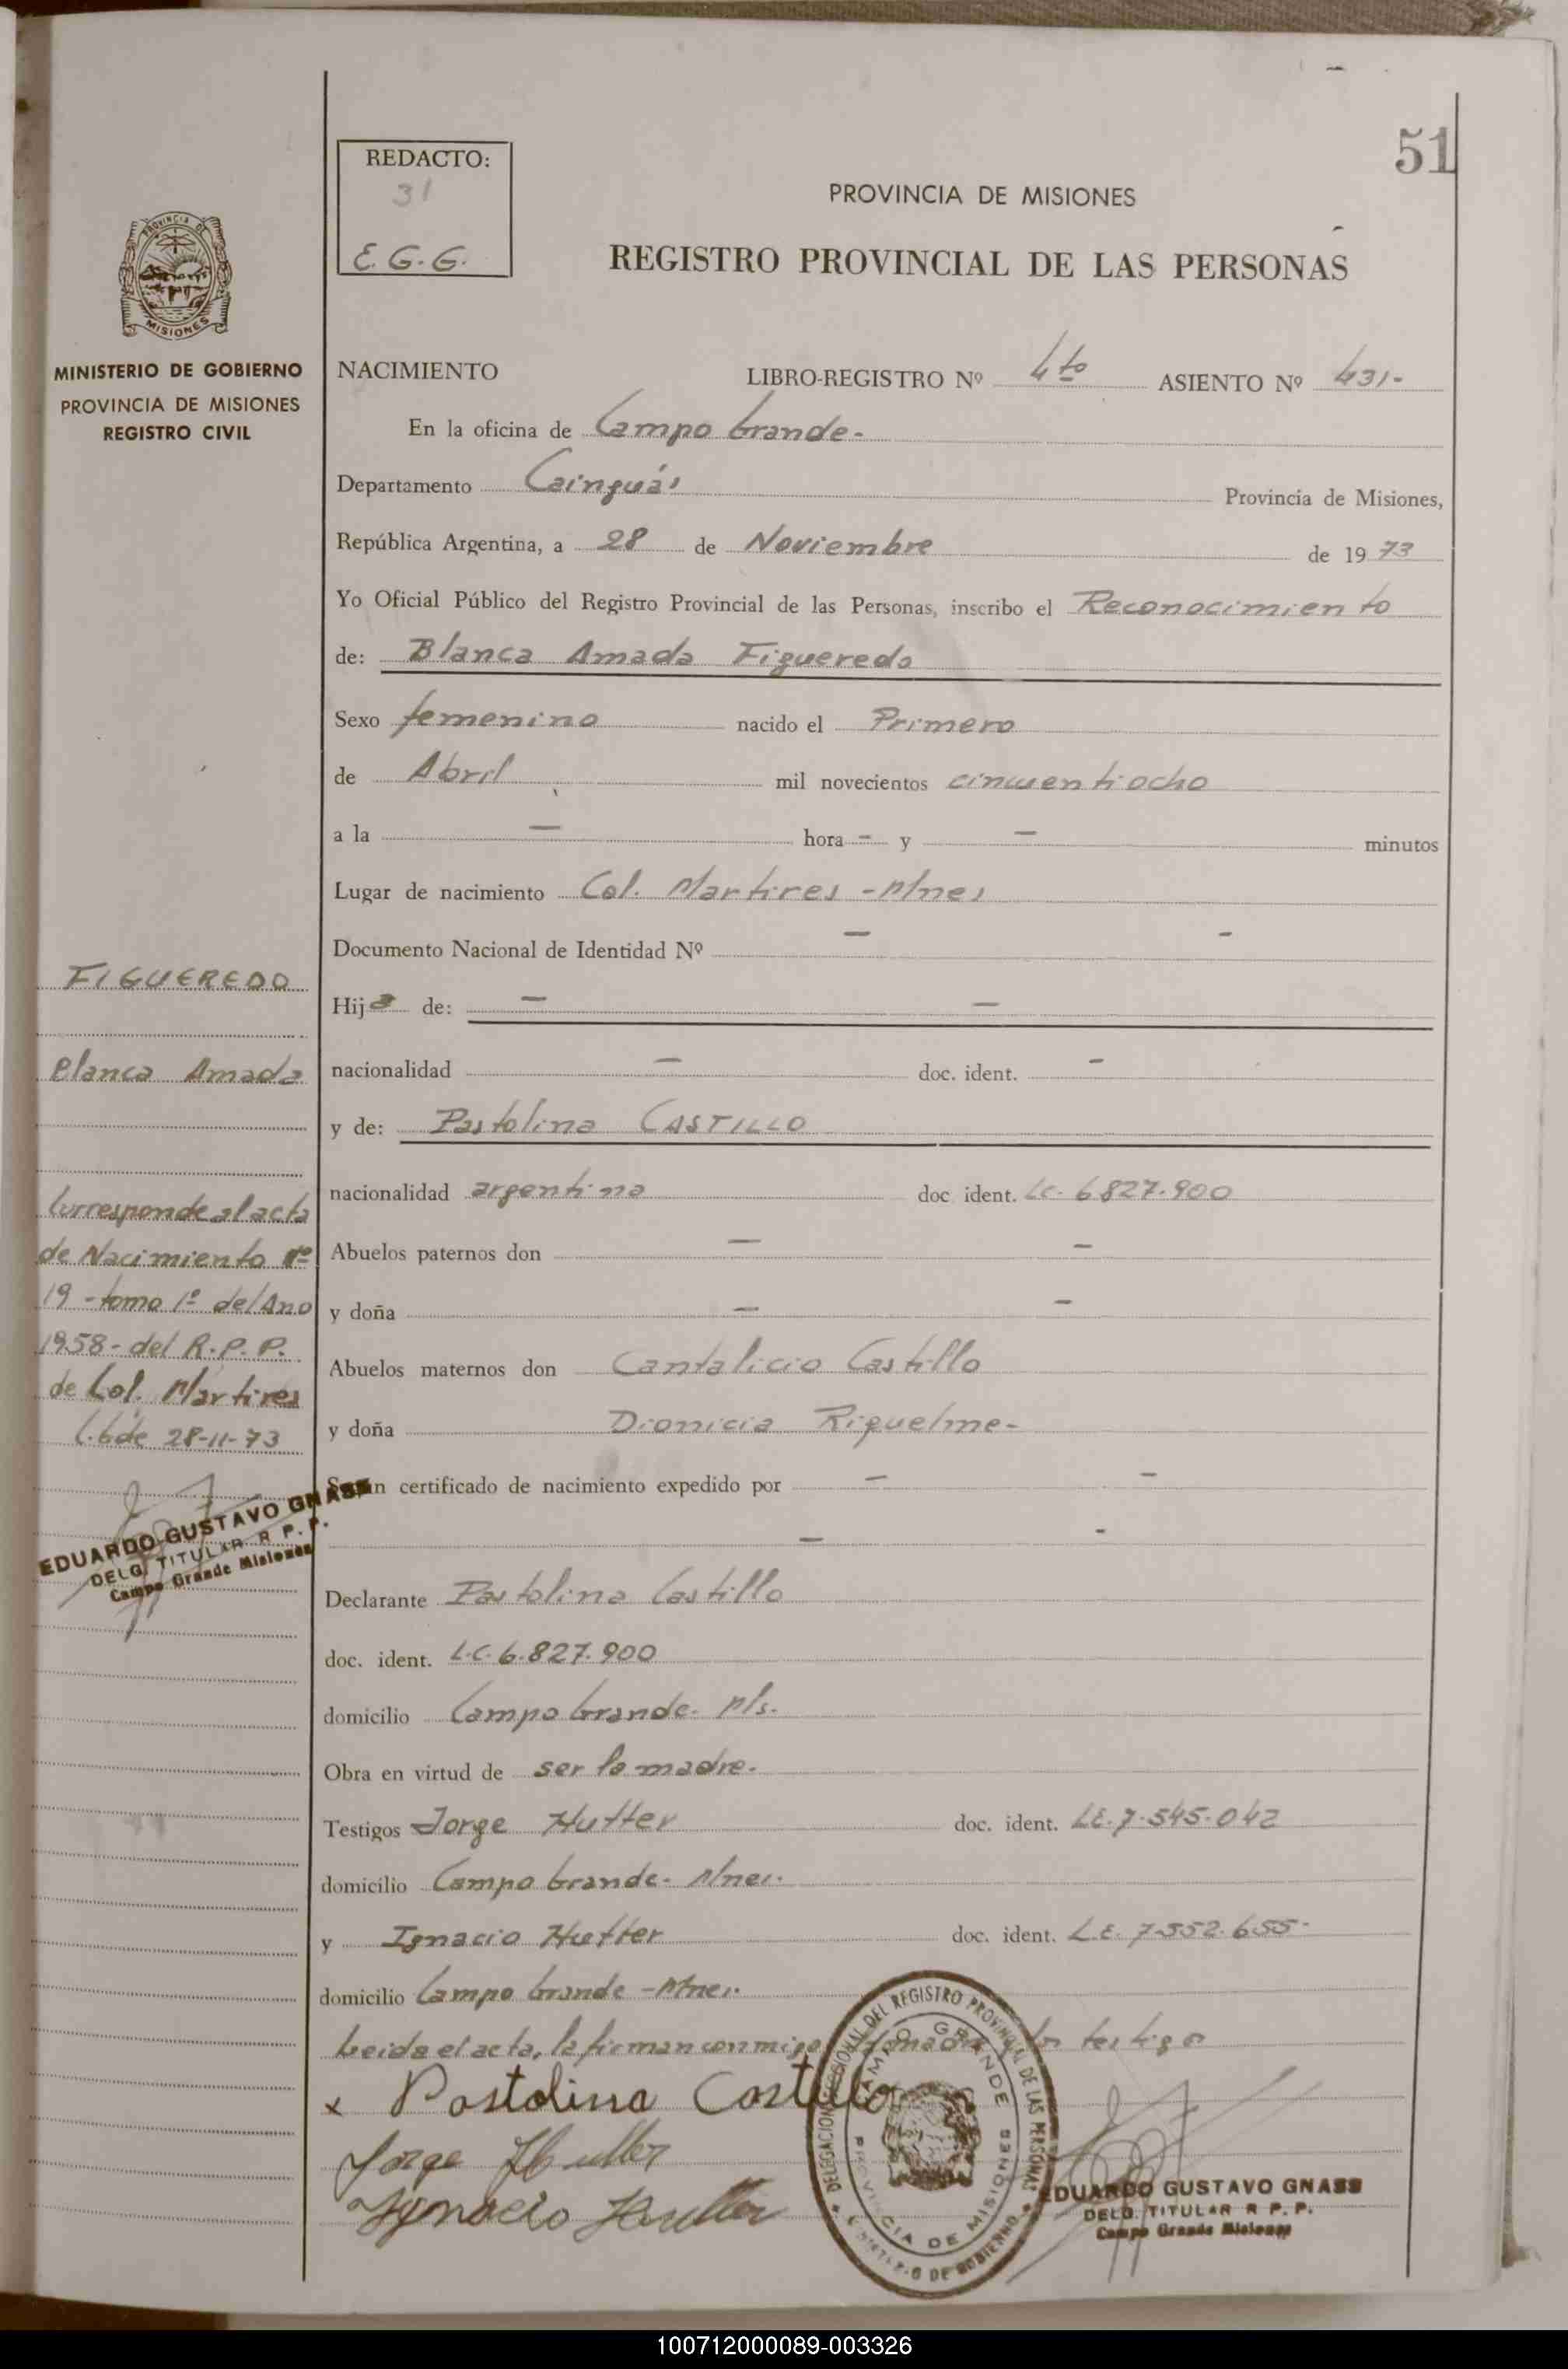 51
REDACTO:
31
E.G.G.
PROVINCIA DE MISIONES
REGISTRO PROVINCIAL DE LAS PERSONAS
PROVINCIA DE
MISIONES
MINISTERIO DE GOBIERNO
PROVINCIA DE MISIONES
REGISTRO CIVIL
NACIMIENTO LIBRO-REGISTRO Nº 4to ASIENTO Nº 431-
En la oficina de Campo Grande-
Departamento Cainguás Provincia de Misiones,
República Argentina, a 28 de Noviembre de 1973
Yo Oficial Público del Registro Provincial de las Personas, inscribo el Reconocimiento
de: Blanca Amada Figueredo
Sexo femenino nacido el Primero
de Abril mil novecientos cincuentiocho
a la — hora - y — minutos
Lugar de nacimiento Col. Martires - Mnes
Documento Nacional de Identidad Nº — -
Hija de: — —
nacionalidad — doc. ident. -
y de: Pastolina CASTILLO
nacionalidad argentina doc. ident. LC. 6827.900
Abuelos paternos don — -
y doña — -
Abuelos maternos don Cantalicio Castillo
y doña Dionicia Riquelme-
Según certificado de nacimiento expedido por - -
— -
Declarante Pastolina Castillo
doc. ident. L.C. 6.827.900
domicilio Campo Grande- Ms.
Obra en virtud de ser la madre.
Testigos Jorge Hutter doc. ident. LE. 7.545.042
domicilio Campo Grande- Mnes.
y Ignacio Hutter doc. ident. L.E. 7552.655-
domicilio Campo Grande - Mnes.
Leida el acta, la firman conmigo testigo
x Pastolina Castillo
Jorge Hutter
Ignacio Hutter
FIGUEREDO
Blanca Amada
Corresponde al acta
de Nacimiento nº
19 - tomo 1º del Ano
1958- del R.P.P.
de Col. Martires
28-11-73
EDUARDO GUSTAVO GNASS
DELG. TITULAR R P. P.
Campo Grande Misiones
DELEGACION SECCIONAL DEL REGISTRO PROVINCIAL DE LAS PERSONAS
MINISTERIO DE GOBIERNO
CAMPO GRANDE
PROVINCIA DE MISIONES
EDUARDO GUSTAVO GNASS
DELG. TITULAR R P. P.
Campo Grande Misiones
100712000089-003326